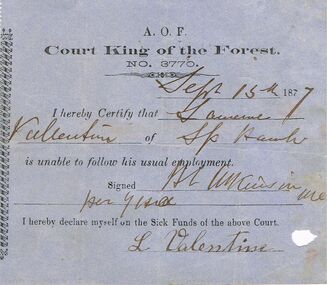 A. O. F.
Court King of the Forest.
NO. 3770.
Sept 15th 1877
I hereby Certify that
of
is unable to follow his usual employment.
Signed
I hereby declare myself on the Sick Funds of the above Court.
L Valentine